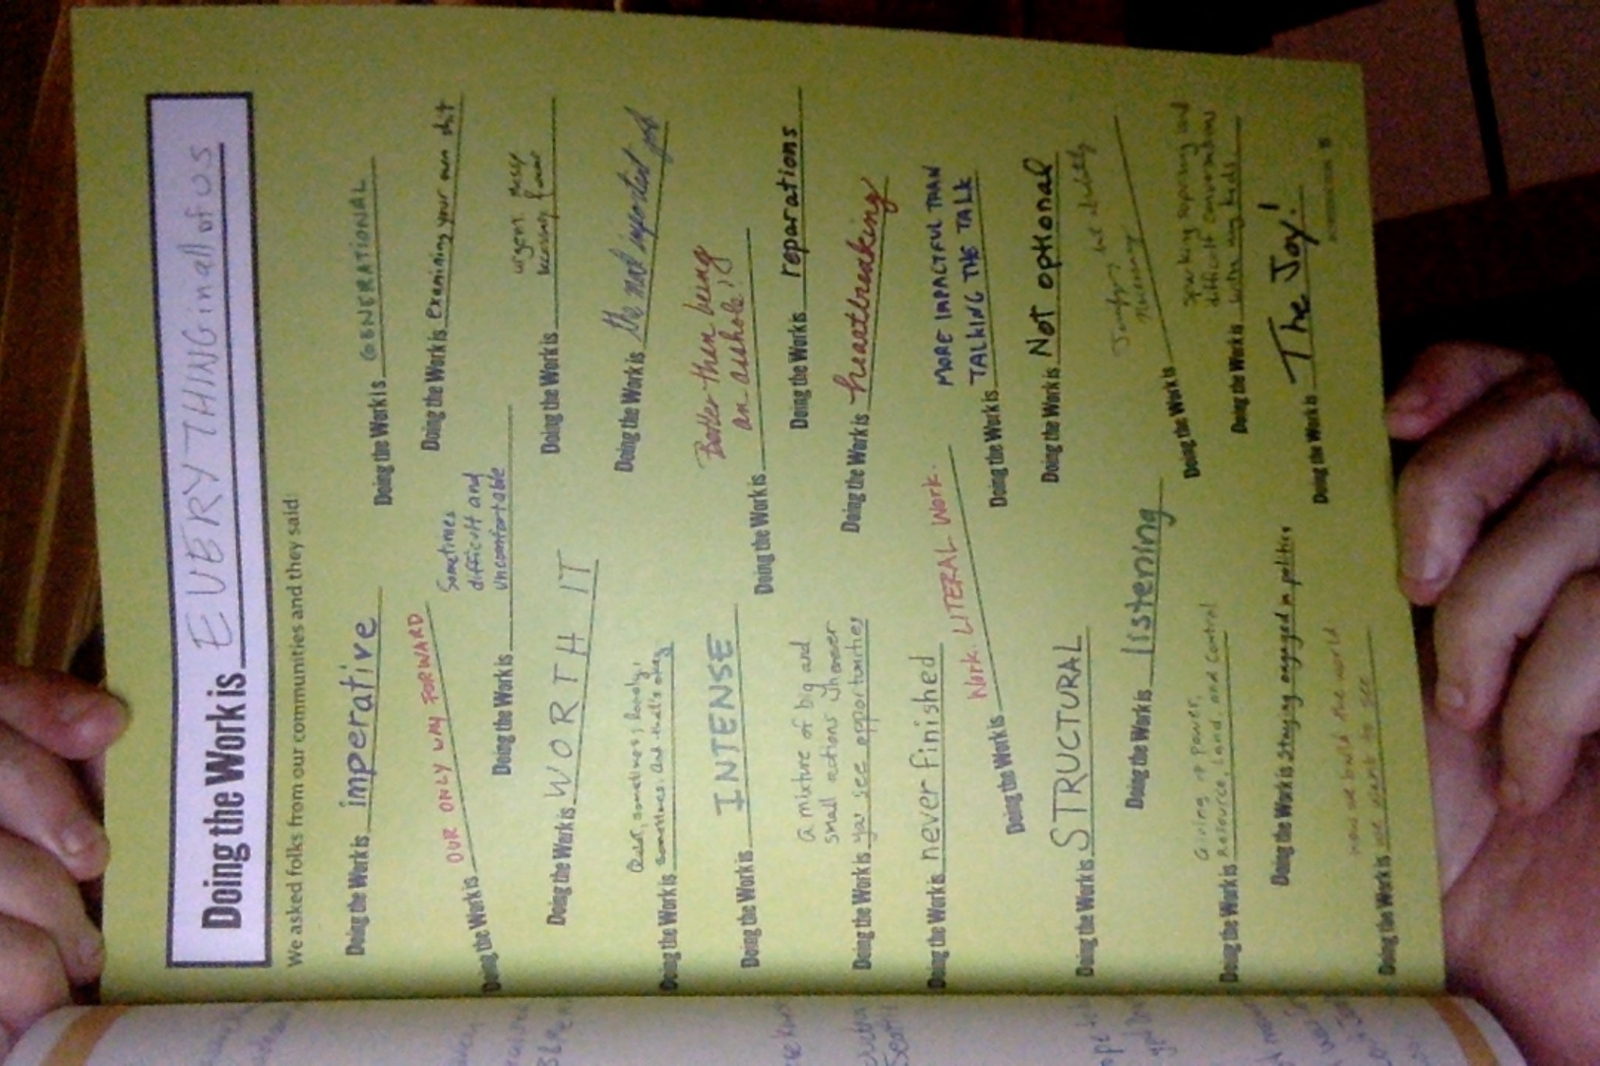 Doing the Work is EVERYTHING in all of us
We asked folks from our communities and they said:
Doing the Work is imperative
Doing the Work is OUR ONLY WAY FORWARD
Doing the Work is Sometimes
difficult and
uncomfortable
Doing the Work is WORTH IT
Doing the Work is
sometimes. And that's okay
Doing the Work is INTENSE
Doing the Work is a mixture of big and
small actions whenever
you see opportunities
Doing the Work is never finished
Doing the Work is Work. LITERAL Work.
Doing the Work is STRUCTURAL
Doing the Work is listening
Doing the Work is Giving up Power,
Resource, Land, and Control
Doing the Work is Staying engaged in politics
Doing the Work is how we build the world
we want to see
Doing the Work is GENERATIONAL
Doing the Work is Examining your own shit
Doing the Work is urgent messy
necessary
Doing the Work is the most important
Doing the Work is Better than being
an asshole!
Doing the Work is reparations
Doing the Work is heartbreaking
Doing the Work is MORE IMPACTFUL THAN
TALKING THE TALK
Doing the Work is Not optional
Doing the Work is
Doing the Work is
difficult conversations
with my kids
Doing the Work is The Joy!